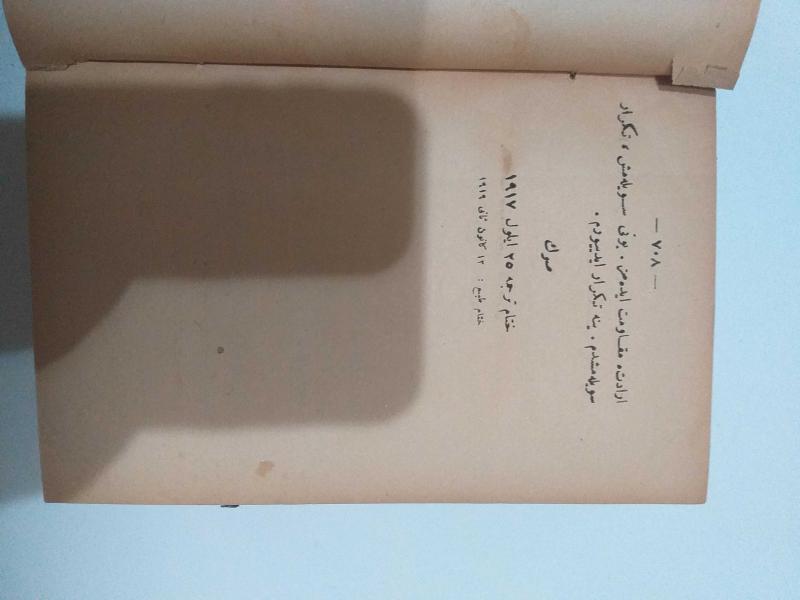 — ٧٠٨ —
ارادته مقاومت ایده‌من. بونی سویله‌مش، تکرار
سویله‌مشدم. ینه تکرار ایدییورم.
صوك
ختام ترجمه ٢٥ ایلول ١٩١٧
ختام طبع : ١٢ کانون ثانی ١٩١٩